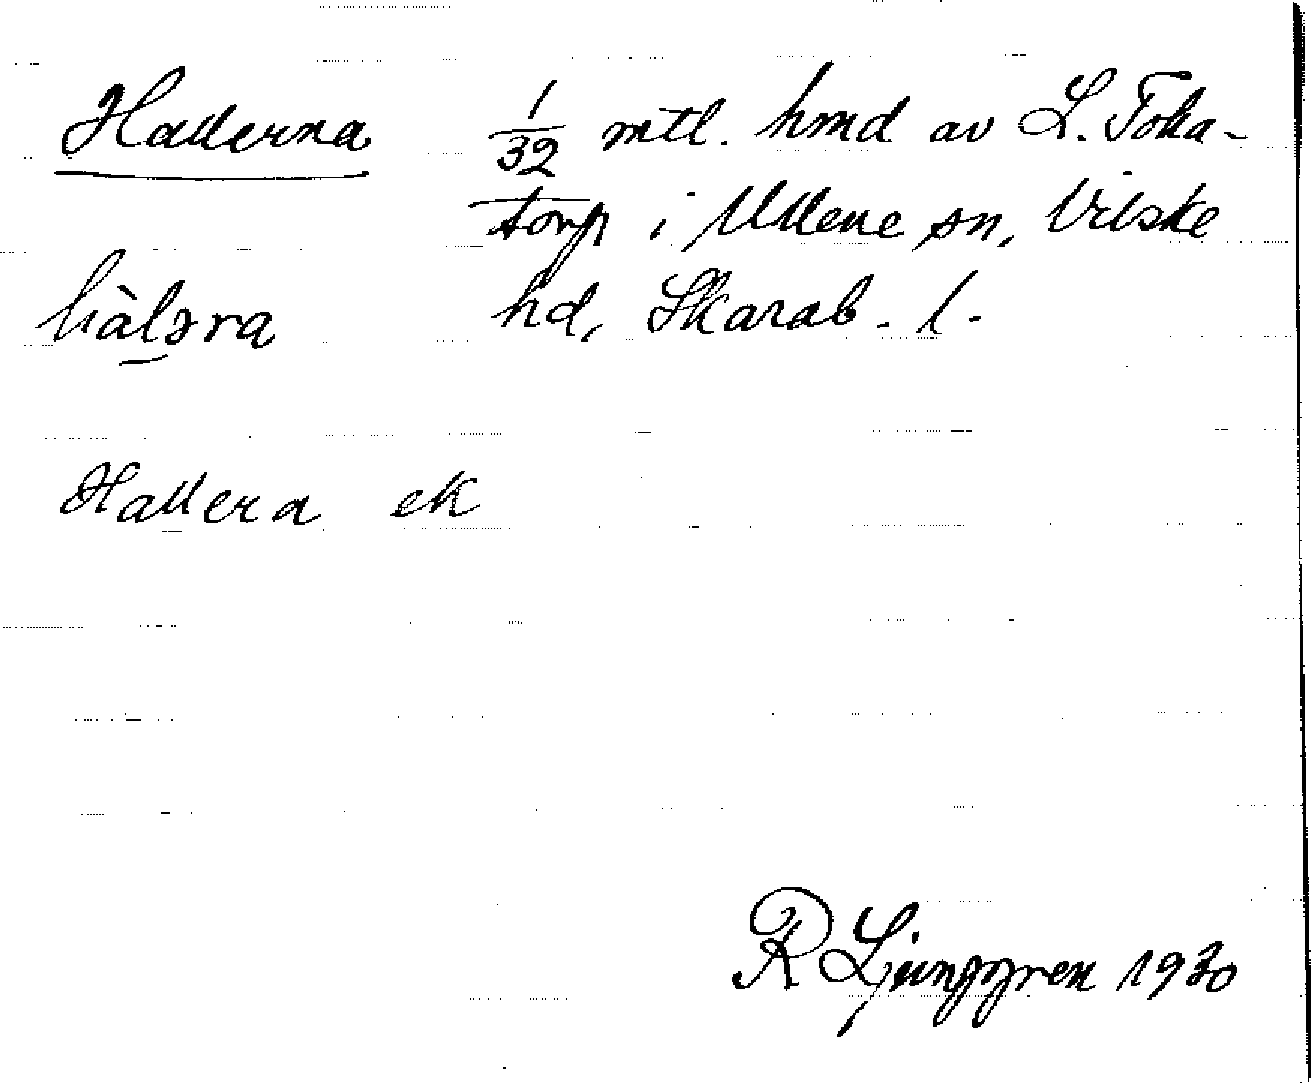 Hallerna 1/32 mtl. hmd av L. Toka-
torp i Ullene sn, Vilske
hàləra hd, Skarab. l.
Hallera ek
R Ljunggren 1930